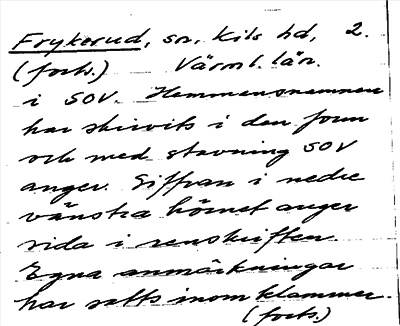 Frykerud, sn, Kils hd, 2.
(forts.) Värml. län.
i SOV. Hemmansnamnen
har skrivits i den form
och med stavning SOV
anger. Siffran i nedre
vänstra hörnet anger
sida i renskriften.
Egna anmärkningar
har satts inom klammer.
(forts.)